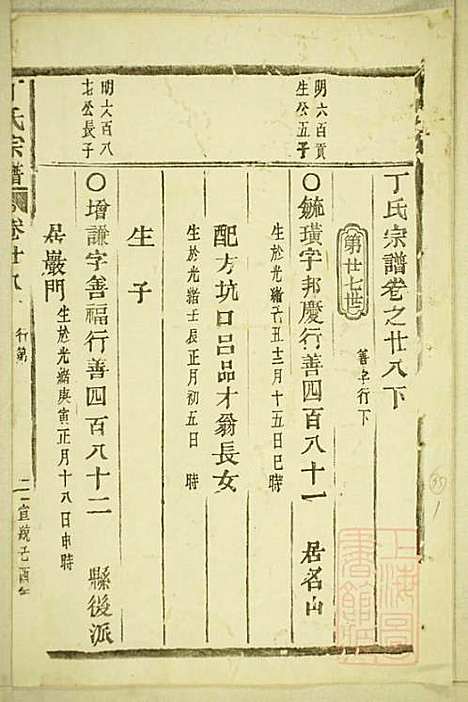 丁氏宗譜卷之廿八下
第廿七世
善字行下
明六百貢
生公五子
○毓璜字邦慶行善四百八十一　居名山
生於光緒己丑十二月十五日巳時
配方坑口呂品才翁長女
生於光緒壬辰正月初五日　時
生　子
明六百八
七公長子
○增謙字善福行善四百八十二　縣後派
居巖門
生於光緒庚寅正月十八日申時
丁氏宗譜
卷廿八
行第
宣統己酉年
上海圖書館藏